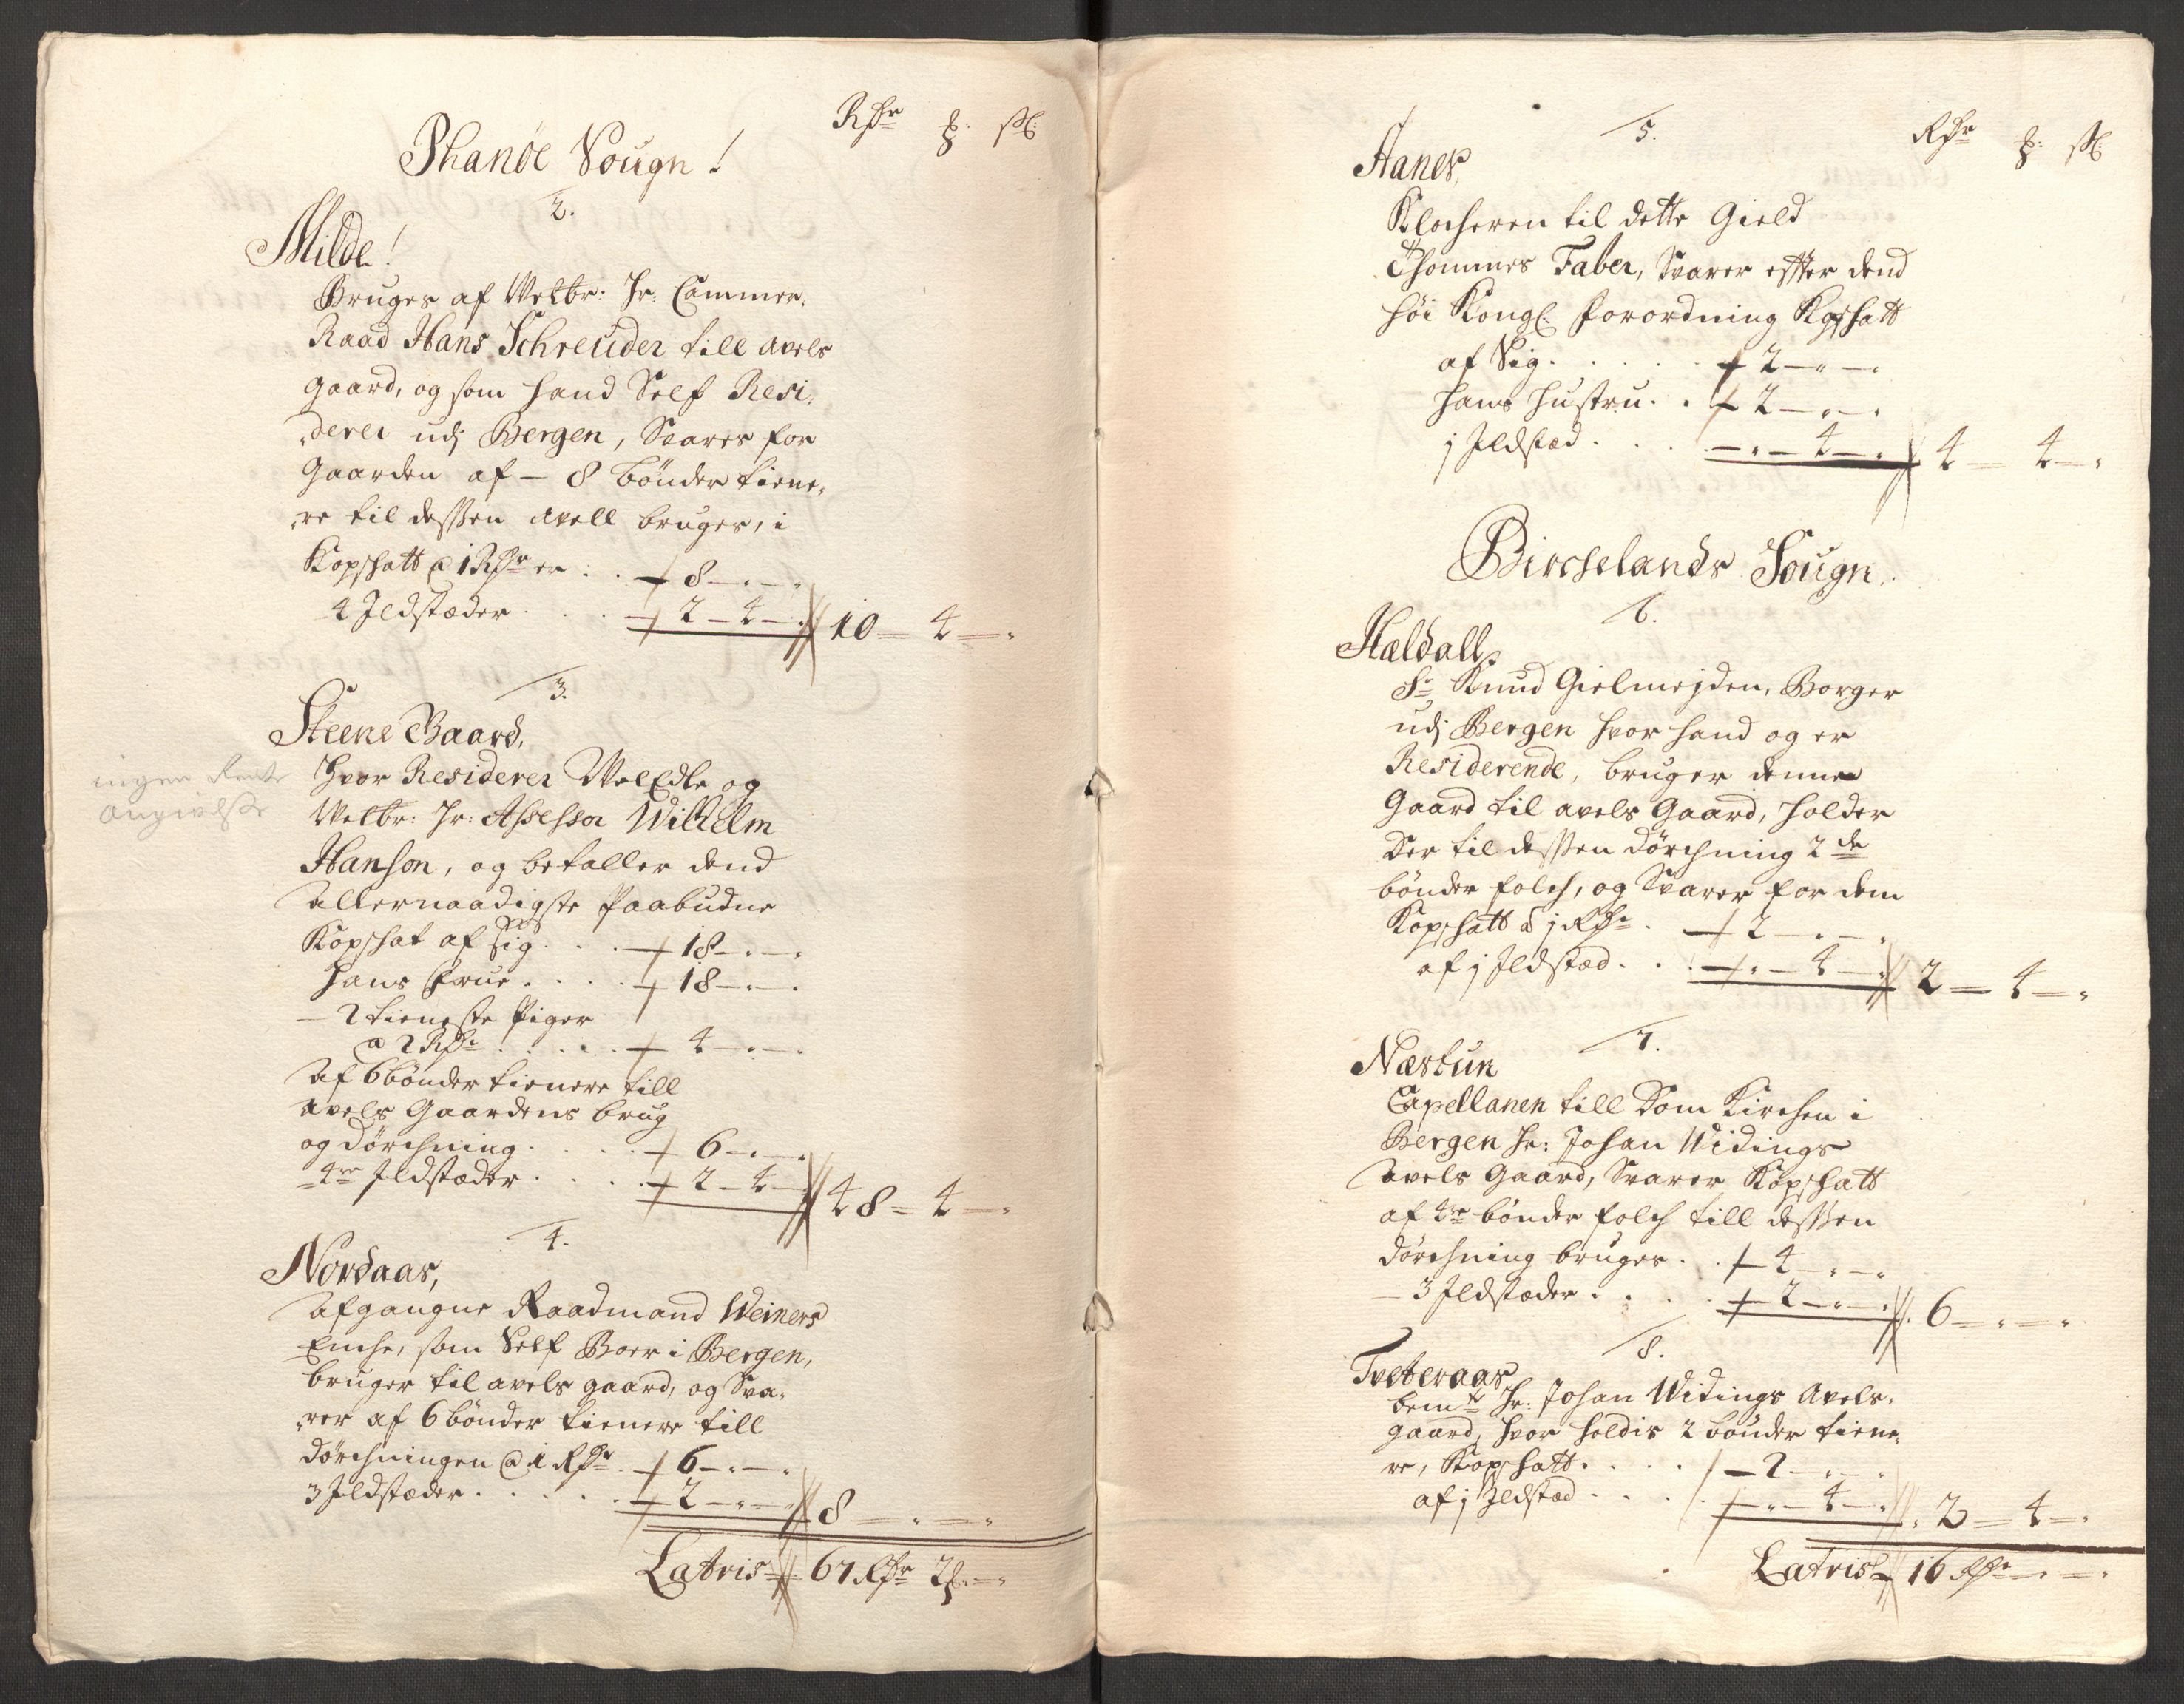 Rdr ß: sk:
Phanöe Sougn!
2.
Milde!
Bruges af Welbr: Hr: Cammer,
Raad Hans Schreuder till avels
gaard, og som hand Self Resi,
,derer udj Bergen, Svares for
Gaarden af - 8 bönder tiene,
,re til dessen avell bruges, i
Kopschatt a 1 Rdr er . . 8 - " - "
4 Jldstæder . . . 2 - 4 - " 10 - 4 - "
3.
Steene Gaard,
ingen Rente
angivelse
Hvor Residerer WelEdle og
Welbr: Hr: Assessor Wilhelm
Hanson, og betaller dend
allernaadigste Paabudne
Kopschat af sig . . . 18 - " - "
hans Frue . . . . 18 - " - "
- 2 tieneste Piger
a 2 Rdr . . . . . 4 - " - "
af 6 bönder tienere till
avels Gaardens brug
og dörchning . . . . 6 - " - "
4re Jldstæder . . . . 2 - 4 - " 48 - 4 - "
4.
Nordaas,
afgangne Raadmand Weiners
Enche, som Self Boer i Bergen,
bruger til avels gaard, og Sva,
,rer af 6 bönder tienere till
dörchningen a 1 Rdr . 6 - " - "
3 Jldstæder . . . . . 2 - " - " 8 - " - "
Latris 67 Rdr 2 ß - "
5. Rdr ß: sk:
Aanes,
Klocheren til dette Gield
Thommes Faber, Svarer effter dend
höi Kongl: forordning Kopschatt
af Sig . . . . . 2 - " - "
hans hustru . . 2 - " - "
j Jldstæd . . . - " - 4 - " 4 - 4 - "
Birchelands Sougn.
6.
Hældall,
Sr Knud Gielmejden, Borger
udj Bergen hvor hand og er
Residerende, bruger denne
Gaard til avels Gaard, holder
der til dessen dörchning 2de
bönder folch, og Svarer for dem
Kopschatt a j Rdr . 2 - " - "
af j Jldstæd . . . - " - 4 - " 2 - 4 - "
7.
Næstun
Capellanen till Dom Kirchen i
Bergen Hr: Johan Widings
avels Gaard, Svarer Kopschatt
af 4re bönder folch till dessen
dörchning bruges . . 4 - " - "
- 3 Jldstæder . . . . 2 - " - " 6 - " - "
8.
Tvetteraas
bemte Hr: Johan Widings Avels,
gaard, hvor holdis 2 bönder tiene,
re, Kopschatt . . . . - 2 - " - "
af j Jldstæd . . . . - " - 4 - " 2 - 4 - "
Latris 16 Rdr - " - "